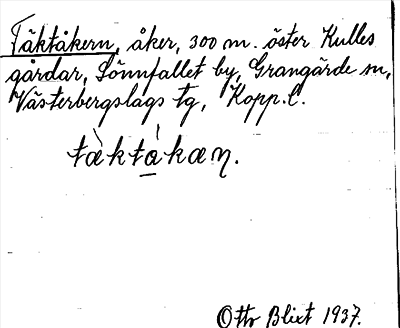 Täktåkern, åker, 300 m. öster Kulles
gårdar, Sönnfallet by, Grangärde sn,
Västerbergslags tg, Kopp. l.
tæ̀ktá̱kæɳ.
Otto Blixt 1937.